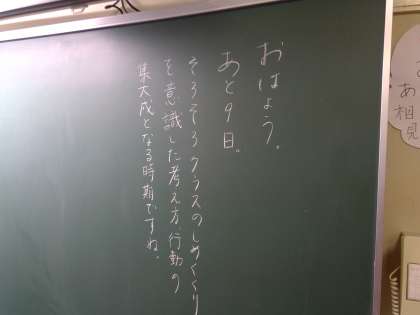 おはよう。
あと9日。
そろそろクラスのしめくくり
を意識した考え方行動の
集大成となる時期ですね。
あ
相
見